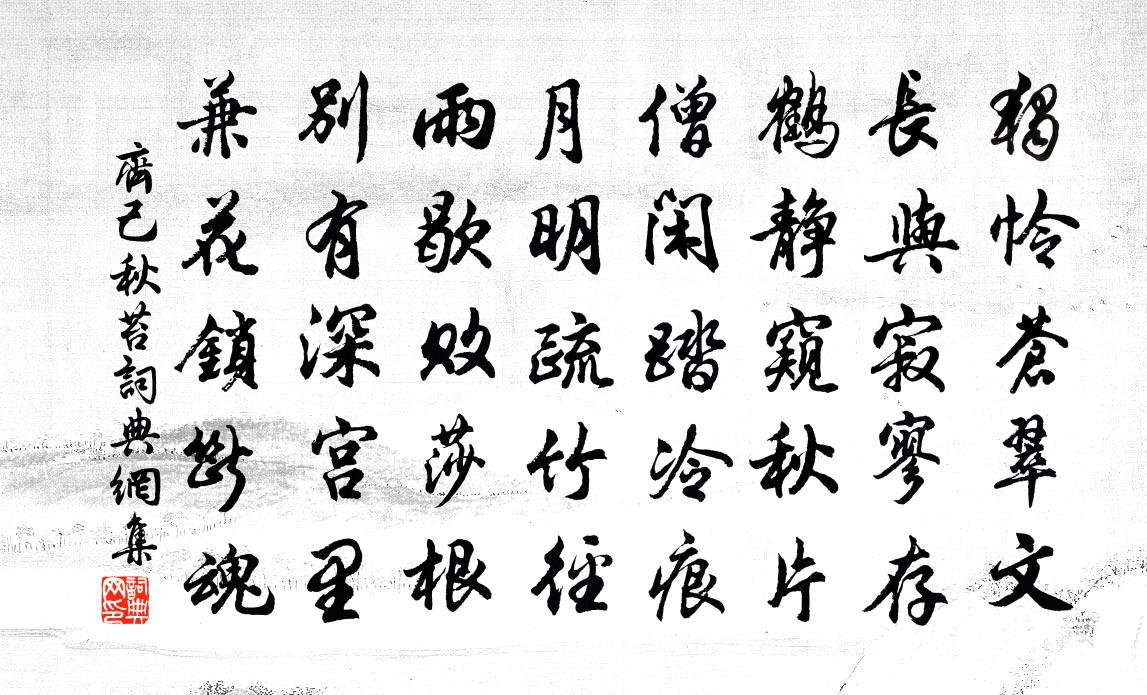 獨怜蒼翠文
長與寂寥存
鶴靜窺秋片
僧閑踏冷痕
月明疏竹徑
雨歇敗莎根
別有深宮里
兼花鎖斷魂
齊己秋苔詞典網集
詞典网印